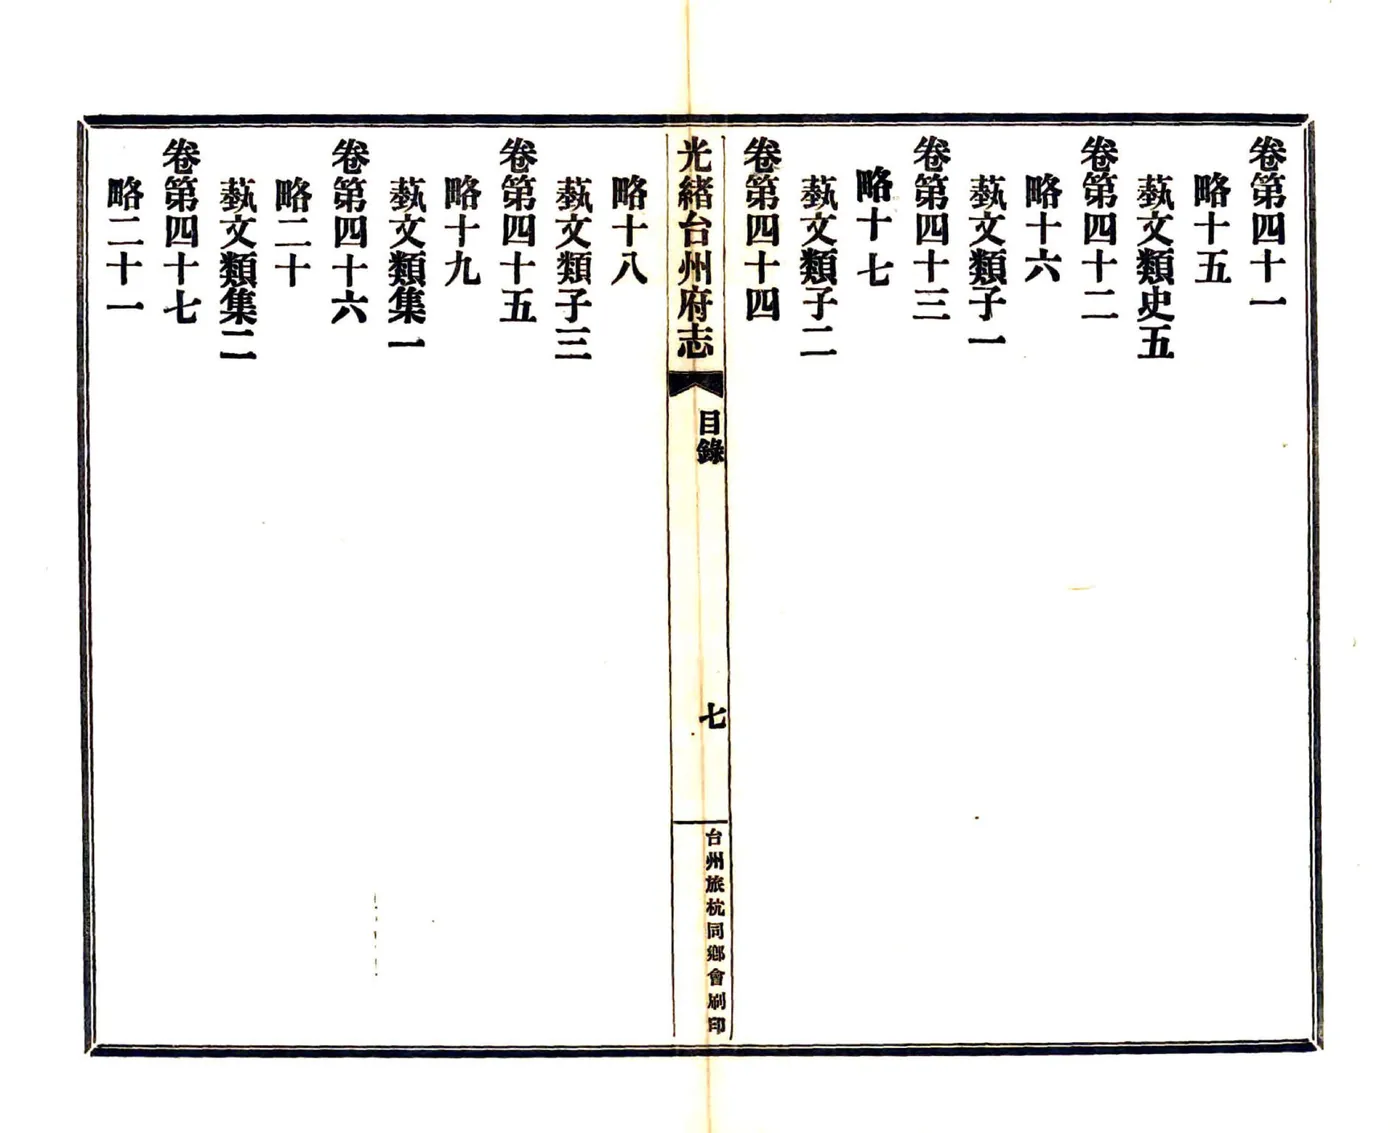 卷第四十一
略十五
藝文類史五
卷第四十二
略十六
藝文類子一
卷第四十三
略十七
藝文類子二
卷第四十四
光緒台州府志
目錄
七
台州旅杭同鄉會刷印
略十八
藝文類子三
卷第四十五
略十九
藝文類集一
卷第四十六
略二十
藝文類集二
卷第四十七
略二十一